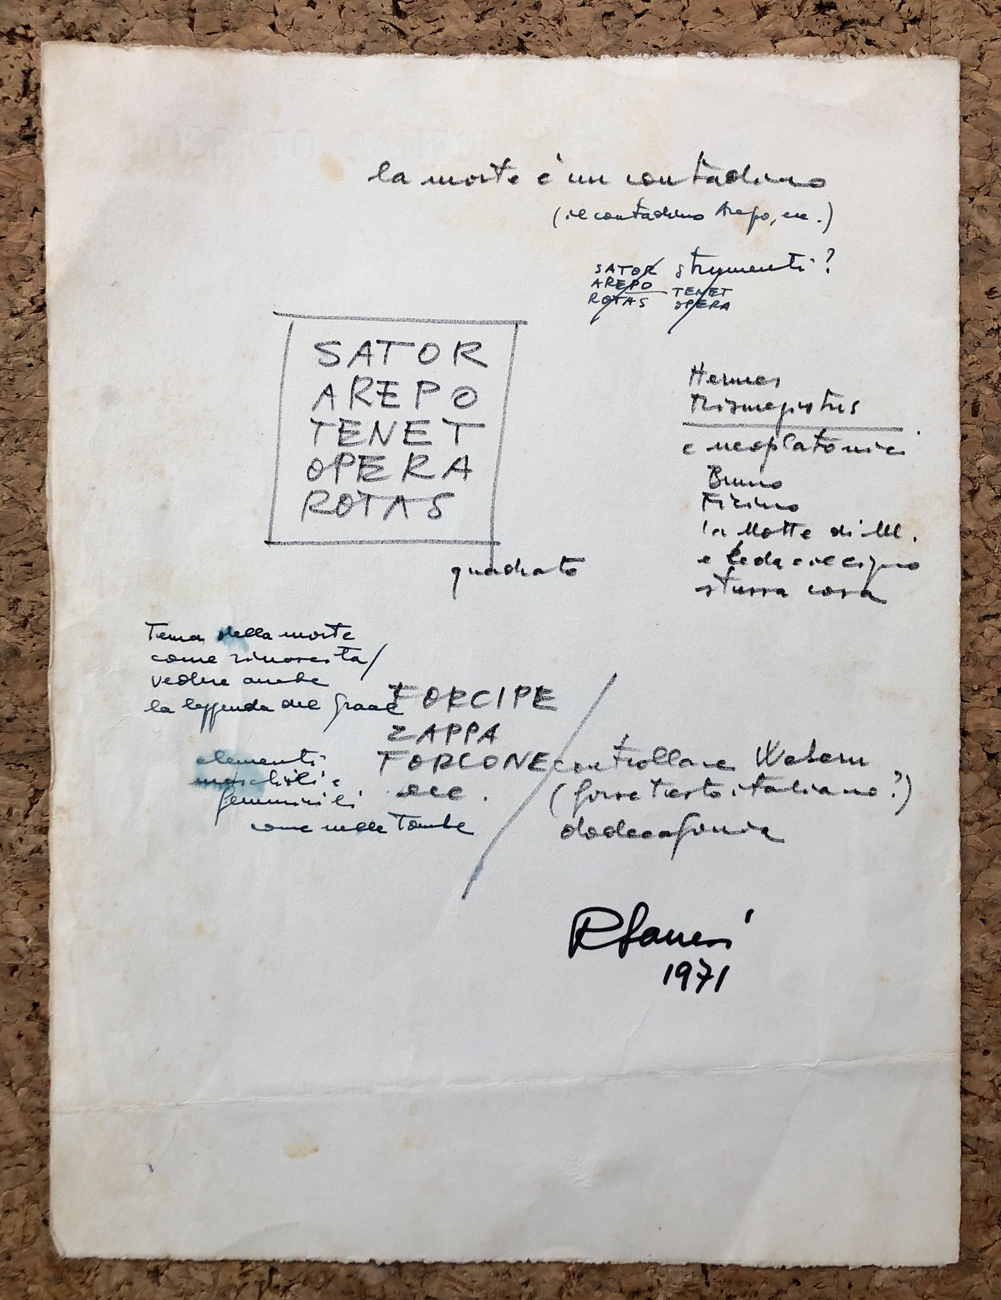 la morte è un contadino
(il contadino Arepo, ecc.)
SATOR strumenti?
AREPO TENET
ROTAS OPERA
SATOR
AREPO
TENET
OPERA
ROTAS
quadrato
Hermes
Trismegistus
e neoplatonici
Bruno
Ficino
la Notte di M.
e Leda e il cigno
stessa cosa
Tema della morte
come rinascita/
vedere anche
la leggenda del Graal
elementi
maschili e
femminili
come nelle Tombe
FORCIPE
ZAPPA
FORCONE
ecc.
controllare Webern
(forse testo italiano?)
dodecafonia
R Sanesi
1971